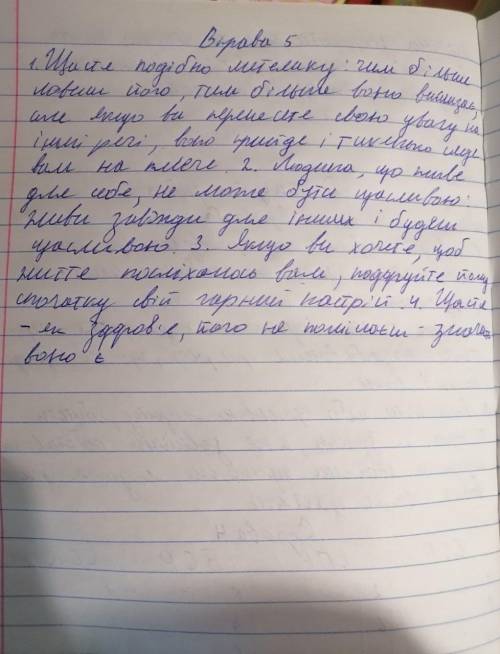 Вправа 5
1. Щастя подібно метелику: чим більше
ловиш його, тим більше воно вислизає,
але якщо ви перенесете свою увагу на
інші речі, воно прийде і тихенько сяде
вам на плече. 2. Людина, що живе
для себе, не може бути щасливою:
живи завжди для інших і будеш
щасливою. 3. Якщо ви хочете, щоб
життя посміхалось вам, подаруйте йому
спочатку свій гарний настрій. 4. Щастя
- як здоров'є, того не помічаєш - значить
воно є